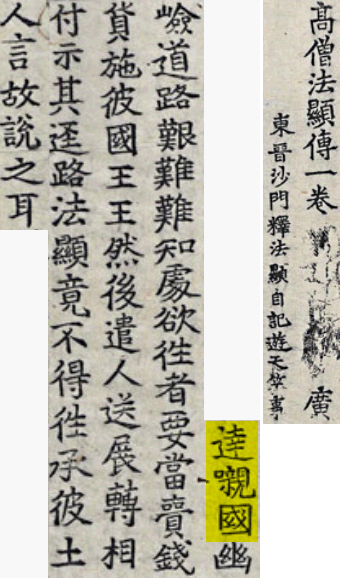 髙僧法顯傳一卷 廣
東晉沙門釋法顯自記遊天竺事
達嚫國幽
嶮道路艱難難知處欲徃者要當賷錢
貨施彼國王王然後遣人送展轉相
付示其逕路法顯竟不得徃承彼土
人言故說之耳